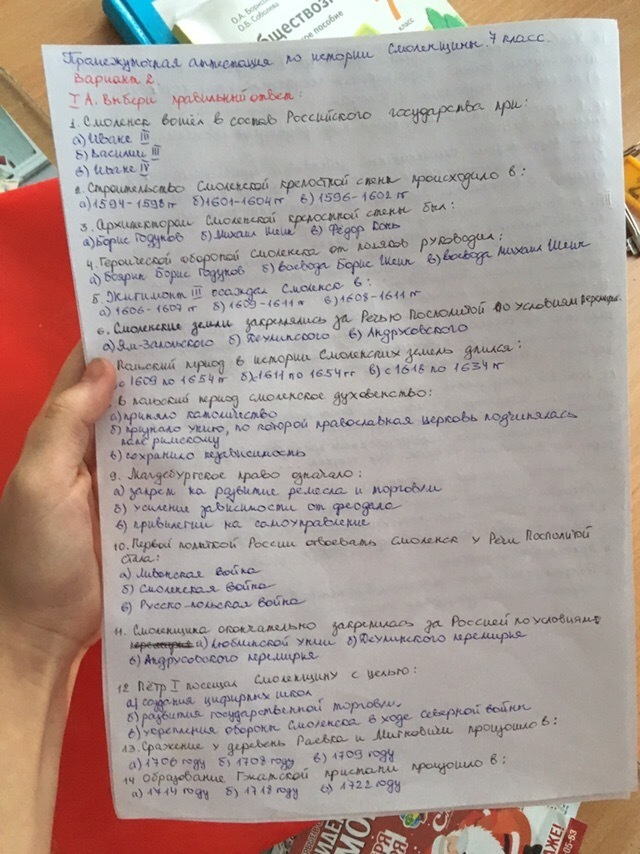 О.А. Борис
О.Б. Соболева
ОБЩЕСТВОЗН
ное пособие
7
класс
Промежуточная аттестация по истории Смоленщины. 7 класс.
Вариант 2.
I А. Выбери правильный ответ:
1. Смоленск вошёл в состав Российского государства при:
а) Иване III
б) Василии III
в) Иване IV
2. Строительство Смоленской крепостной стены происходило в:
а) 1594-1598 гг б) 1601-1604 гг в) 1596-1602 гг
3. Архитектором Смоленской крепостной стены был:
а) Борис Годунов б) Михаил Шеин в) Фёдор Конь
4. Героической обороной Смоленска от поляков руководил:
а) боярин Борис Годунов б) воевода Борис Шеин в) воевода Михаил Шеин
5. Жигимонт III осаждал Смоленск в:
а) 1606-1607 гг б) 1609-1611 гг в) 1608-1611 гг
6. Смоленские земли закреплялись за Речью Посполитой по условиям перемирия:
а) Ям-Запольского б) Деулинского в) Андрусовского
Польский период в истории Смоленских земель длился:
с 1609 по 1654 г б) с 1611 по 1654 гг в) с 1618 по 1634 гг
В польский период смоленское духовенство:
а) приняло католичество
б) признало унию, по которой православная церковь подчинялась
папе римскому
в) сохранило независимость
9. Магдебургское право означало:
а) запрет на развитие ремесла и торговли
б) усиление зависимости от феодала
в) привилегии на самоуправление
10. Первой попыткой России отвоевать Смоленск у Речи Посполитой
стала:
а) Ливонская война
б) Смоленская война
в) Русско-польская война
11. Смоленщина окончательно закрепилась за Россией по условиям:
а) Люблинской унии б) Деулинского перемирия
в) Андрусовского перемирия
12 Пётр I посещал Смоленщину с целью:
а) создания цифирных школ
б) развития государственной торговли
в) укрепления обороны Смоленска в ходе северной войны
13. Сражение у деревень Раевка и Мигновичи прошло в:
а) 1706 году б) 1708 году в) 1709 году
14 Образование Гжатской пристани прошло в:
а) 1714 году б) 1718 году в) 1722 году
05-53